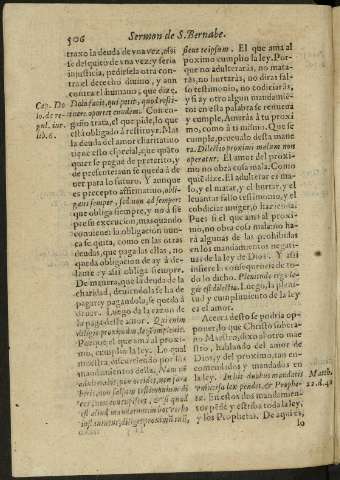 506 Sermon de S. Bernabe.
traxo la deuda de vna vez, assi
se desquitò de vna vez: y seria
injusticia, pedirsela otra con-
tra el derecho diuino, y aun
contra el humano; que dize,
Dolo facit, qui petit, quod resti-
tuere oportet eundem. Con en-
gaño trata, el que pide, lo que
està obligado à restituyr. Mas
la deuda del amor charitatiuo
tiene esto especial, que quãto
quier se pague de preterito, y
de presente aun se queda à de
uer para lo futuro. Y aunque
es precepto affirmatiuo, obli-
gans semper, sed non ad semper:
que obliga siempre, y no à siē
pre su execucion, mas quando
conuiene: la obligation nunca
se quita, como en las otras
deudas, que paga las ellas, no
queda obligacion de ay à de-
lante: y assi obliga siempre.
De manera, que la deuda de la
charidad, deuiendola se ha de
pagar y pagandola, se queda à
deuer. Luego da la razon de
la paga deste amor. Qui enim
diligit proximum, legem impleuit.
Porque el que ama al proxi-
mo, cumplio la ley. Lo qual
muestra discurriendo por los
mandamientos della. Nam nō
adulterabis, non occides, non fura
beris, non falsum testimonium di
ces, non concupisces, & si quod
est aliud mandatum in hoc verbo
instauratur, diliges proximum tuũ
sicut teipsum. El que ama al
proximo cumplio la ley. Por-
que no adulterarás, no mata-
rás, no hurtarás, no diras fal-
so testimonio, no codiciaràs,
y si ay otro algun mandamiē-
to: en esta palabra se renueua
y cumple, Amaràs à tu proxi
mo, como à ti mismo. Que se
cumple, prouado desta mane
ra. Dilectio proximi malum non
operatur. El amor del proxi-
mo no obra cosa mala. Como
què dize: El adulterar es ma-
lo, y el matar, y el hurtar, y el
leuantar falso testimonio, y el
cobdiciar muger, o hazienda.
Pues si el que ama al proxi-
mo, no obra cosa mala: no ha
rà algunas de las prohibidas
en los mandamientos negati-
uos de la ley de Dios. Y assi
infiere la consequencia de to-
do lo dicho. Plenitudo ergo le-
gis est dilectio. Luego, la pleni-
tud y cumplimiento de la ley
es el amor.
Acerca desto se podria op-
poner, lo que Christo sobera-
no Maestro, dixo al otro mae
stro, hablando del amor de
Dios, y del proximo, tan en-
comendados y mandados en
la ley. In his duobus mandatis
vniuersa lex pendet, & Prophe-
ta. En estos dos mandamien-
tos pēde y estriba toda la ley,
y los Prophetas. De aqui es,
lo
Cap. Do
lo. de re-
gul. iur.
lib. 6.
Matth.
22. d. 40